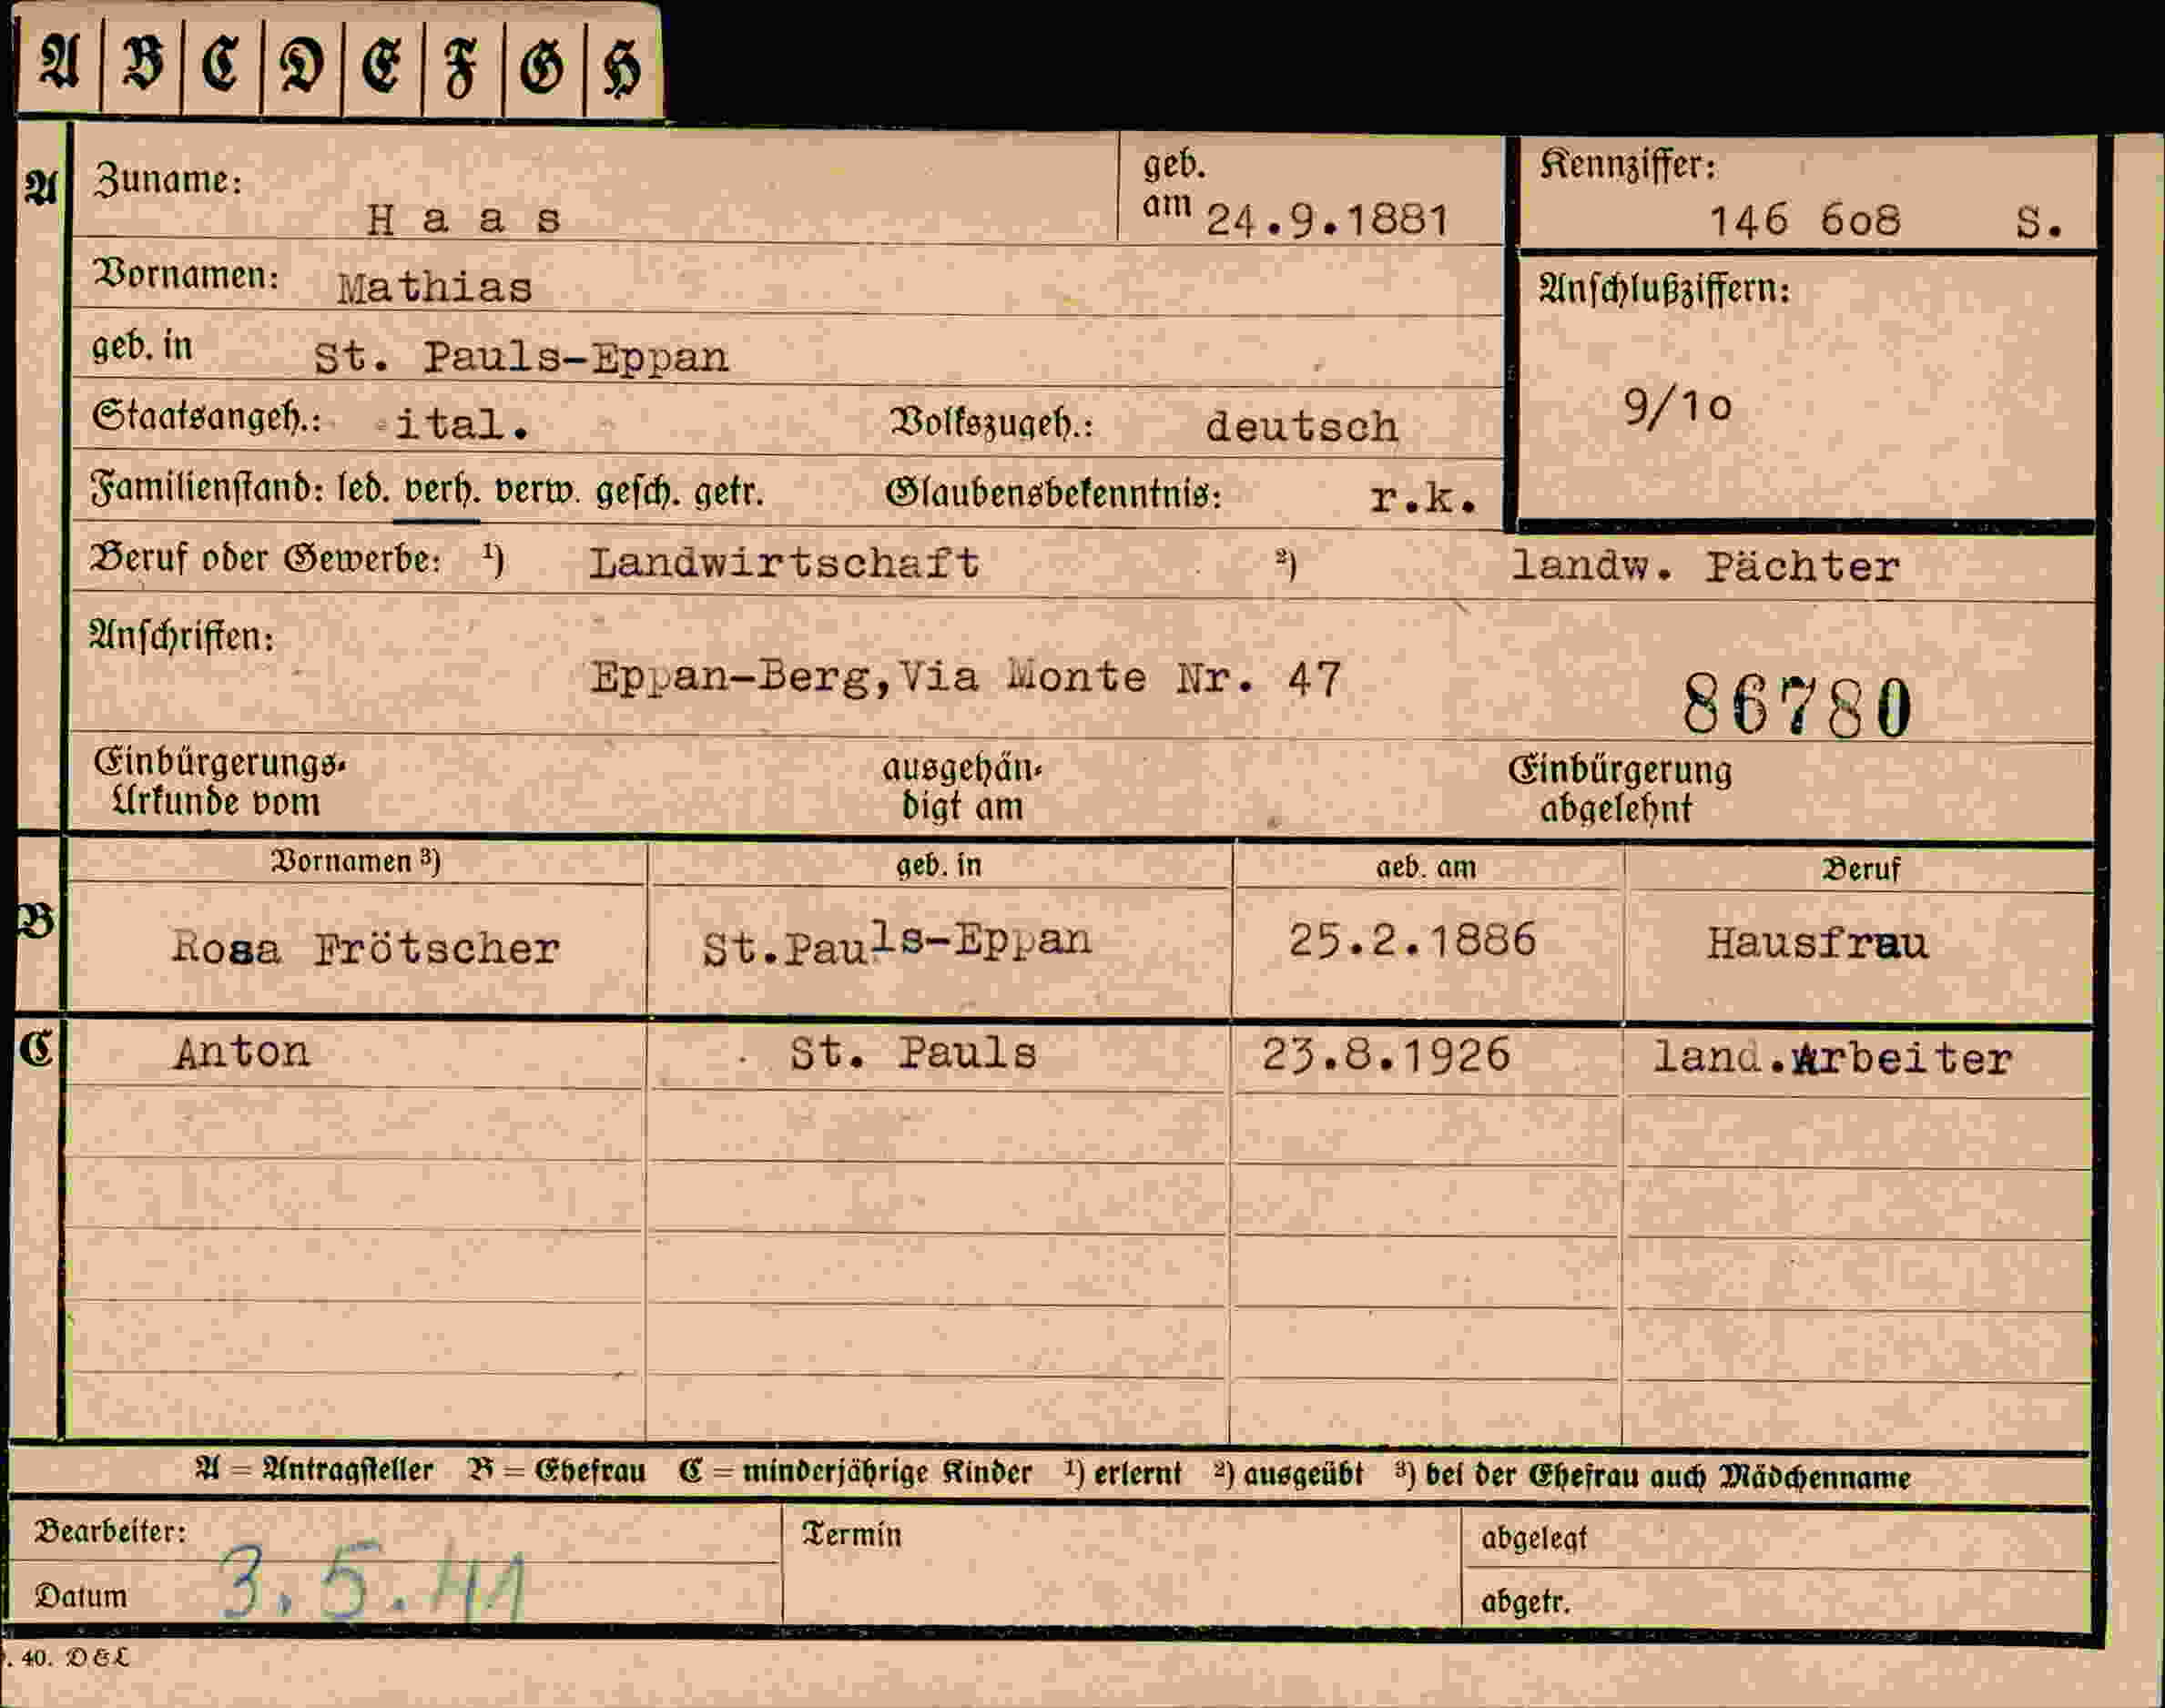 A B C D E F G H
A Zuname: H a a s geb. am 24.9.1881 Kennziffer: 146 6o8 S.
Vornamen: Mathias Anschlußziffern:
geb. in St. Pauls-Eppan
Staatsangeh.: ital. Volkszugeh.: deutsch 9/1o
Familienstand: led. verh. verw. gesch. getr. Glaubensbekenntnis: r.k.
Beruf oder Gewerbe: ¹) Landwirtschaft ²) landw. Pächter
Anschriften:
Eppan-Berg,Via Monte Nr. 47 86780
Einbürgerungs- ausgehän- Einbürgerung
Urkunde vom digt am abgelehnt
Vornamen ³) geb. in geb. am Beruf
B Rosa Frötscher St.Pauls-Eppan 25.2.1886 Hausfrau
C Anton St. Pauls 23.8.1926 land.Arbeiter
A = Antragsteller B = Ehefrau C = minderjährige Kinder ¹) erlernt ²) ausgeübt ³) bei der Ehefrau auch Mädchenname
Bearbeiter: Termin abgelegt
Datum 3.5.41 abgetr.
. 40. D & L